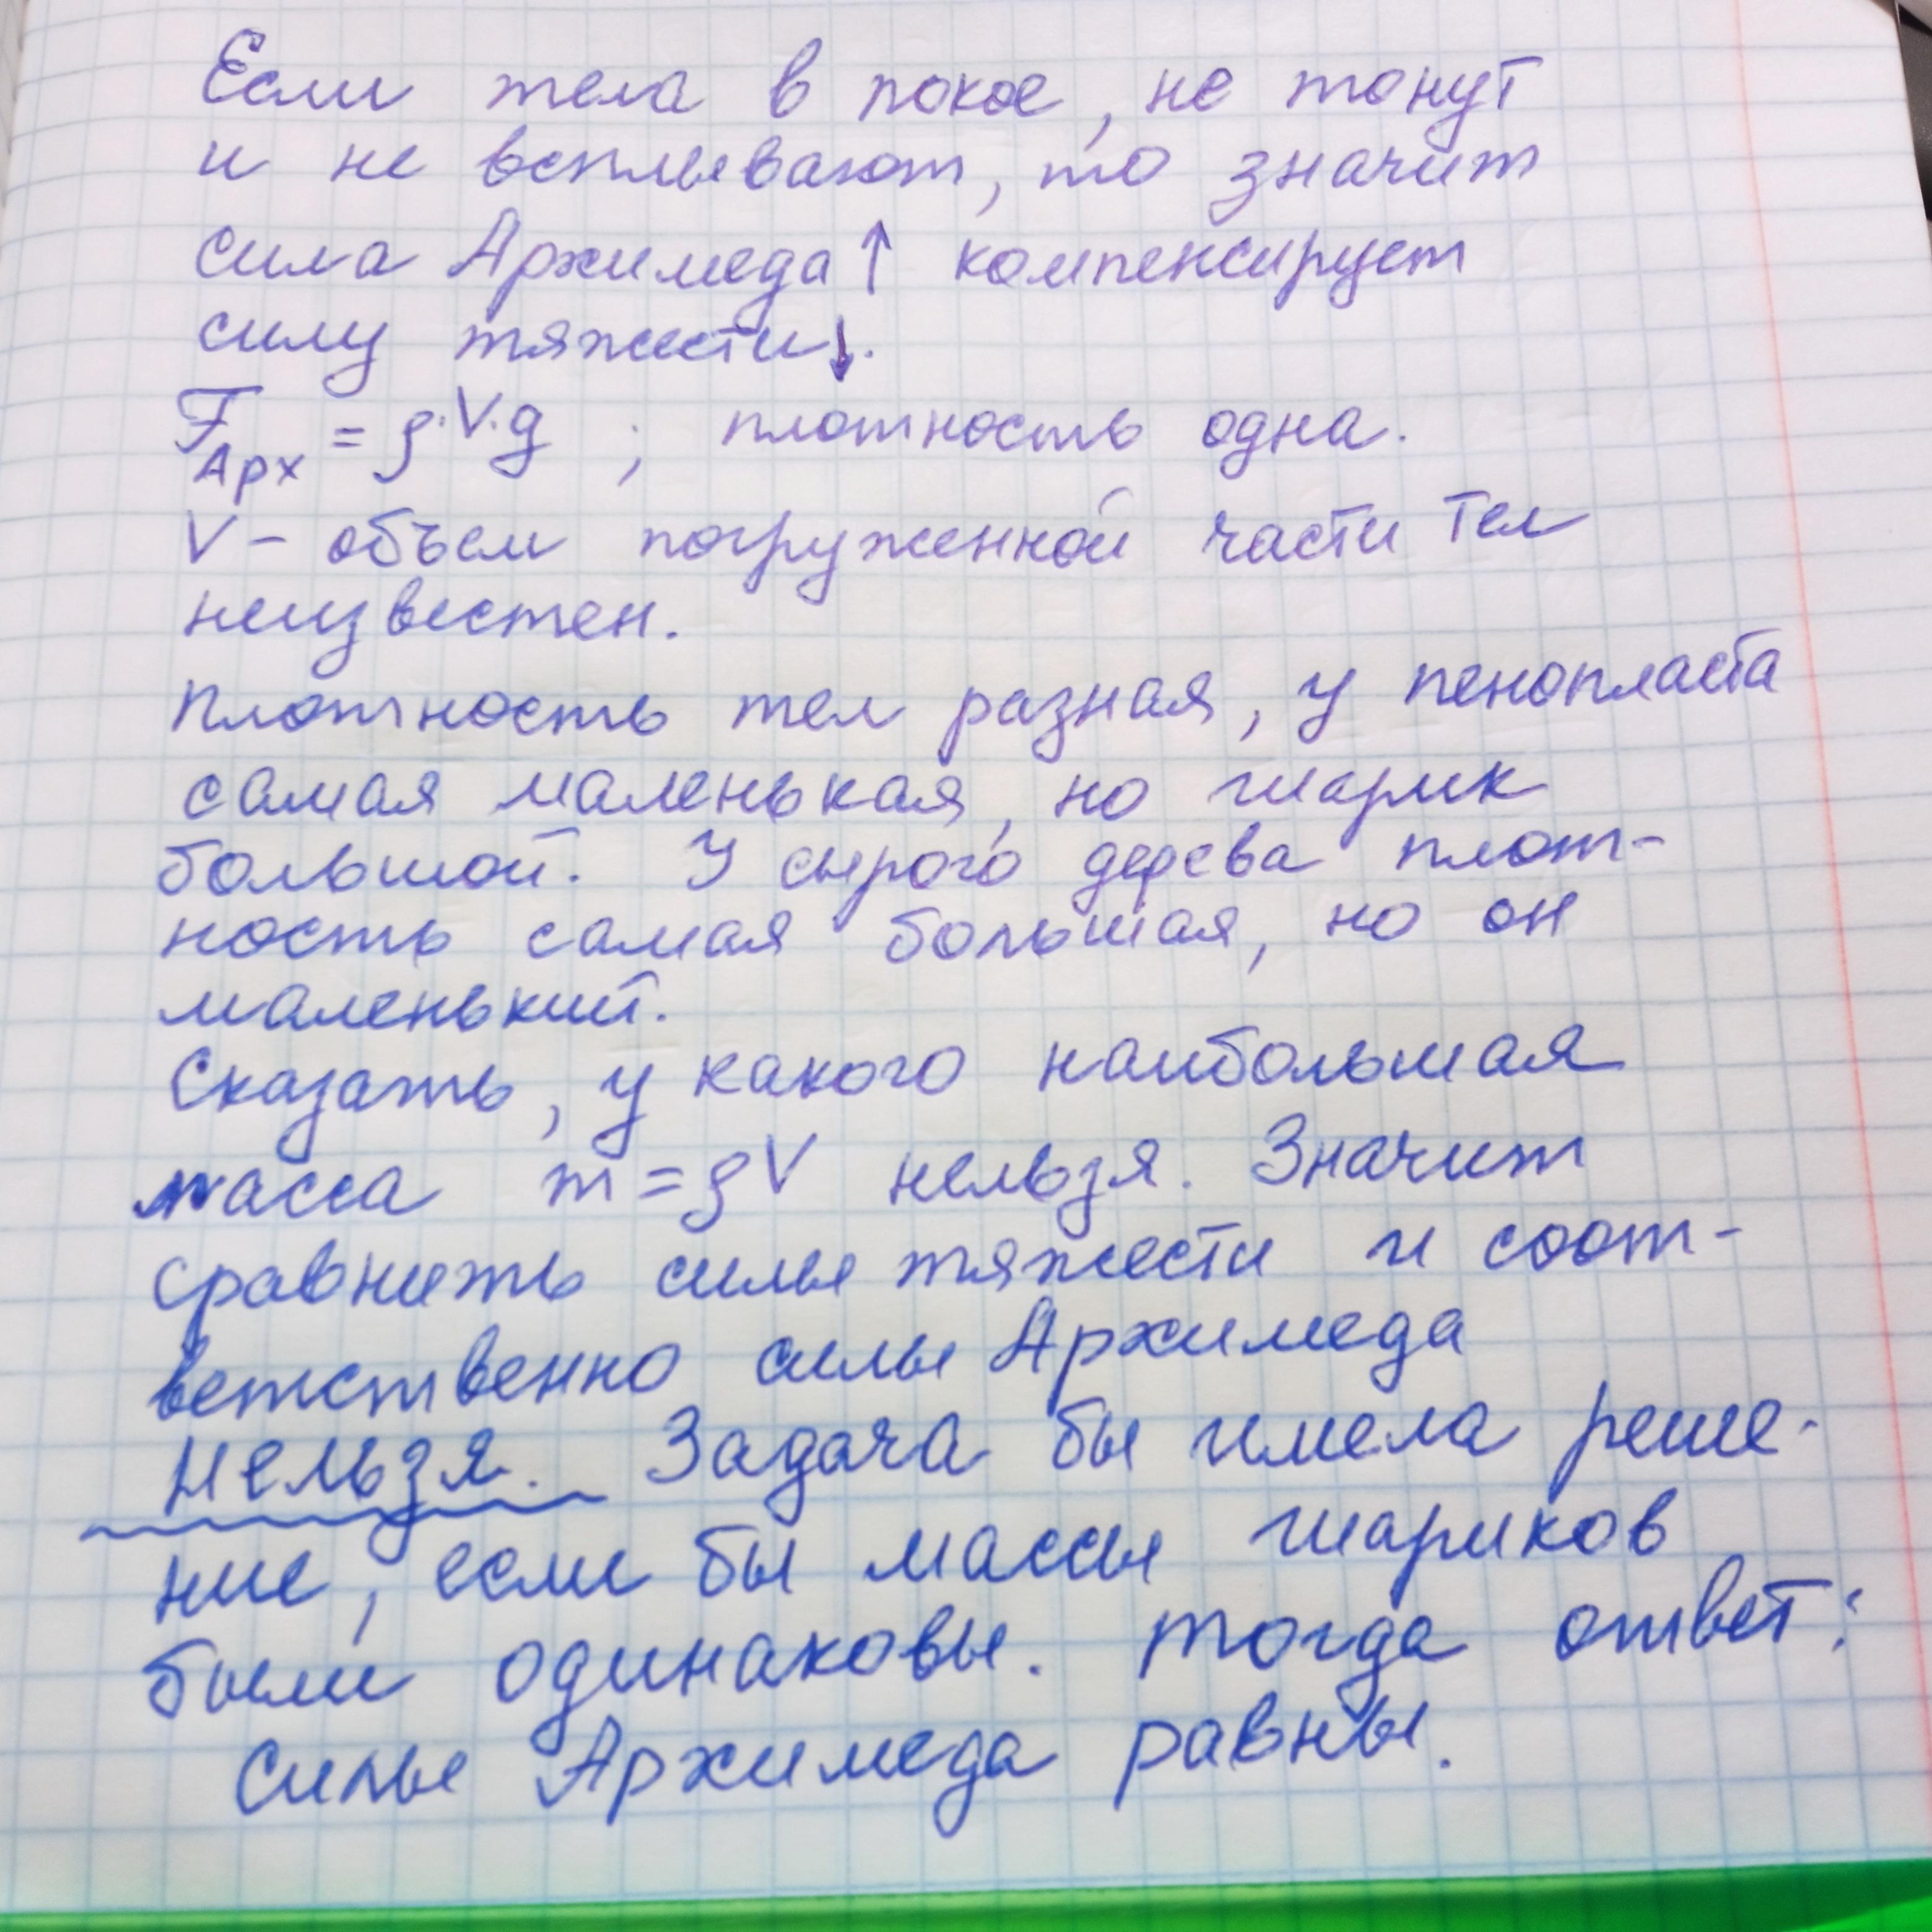 Если тела в покое, не тонут
и не всплывают, то значит
сила Архимеда ↑ компенсирует
силу тяжести ↓.
F Арх = ρ·V·g ; плотность одна.
V – объем погруженной части тел
неизвестен.
Плотность тел разная, у пенопласта
самая маленькая, но шарик
большой. У сырого дерева плот-
ность самая большая, но он
маленький.
Сказать, у какого наибольшая
масса m = ρV нельзя. Значит
сравнить силы тяжести и соот-
ветственно силы Архимеда
нельзя. Задача бы имела реше-
ние, если бы массы шариков
были одинаковы. Тогда ответ:
Силы Архимеда равны.